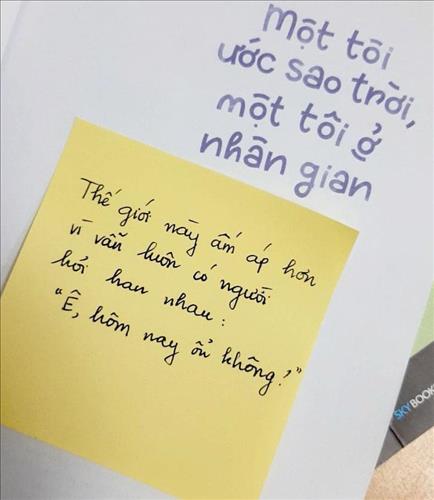 Một tôi
ước sao trời,
một tôi ở
nhân gian
Thế giới này ấm áp hơn
vì vẫn luôn có người
hỏi han nhau:
"Ê, hôm nay ổn không?"
SKYBOOK